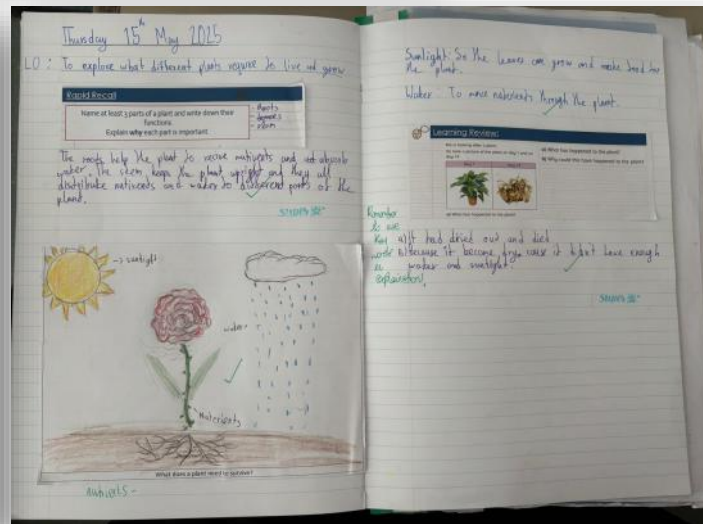 Thursday 15th May 2025
LO: To explore what different plants require to live and grow
Rapid Recall
Name at least 3 parts of a plant and write down their
functions.
Explain why each part is important.
- Roots
- leaves
- stem
The roots help the plant to recive nutients and absorb
water. The stem keeps the plant upright and they all
distribute nutients and water to different parts of the
plant.
-> sunlight
water-
Nuterients
What does a plant need to survive?
nutrients -
Sunlight: So the leaves can grow and make food for
the plant.
Water: To move nuterients through the plant.
Learning Review:
Day 1
a) What has happened to the plant?
b) Why could this have happened to the plant?
a) What has happened to the plant?
Remember
to use
key
words
in
explanations.
a) It had dried out and died
b) Because it become dry, cause it didn't have enough
water and sunlight.